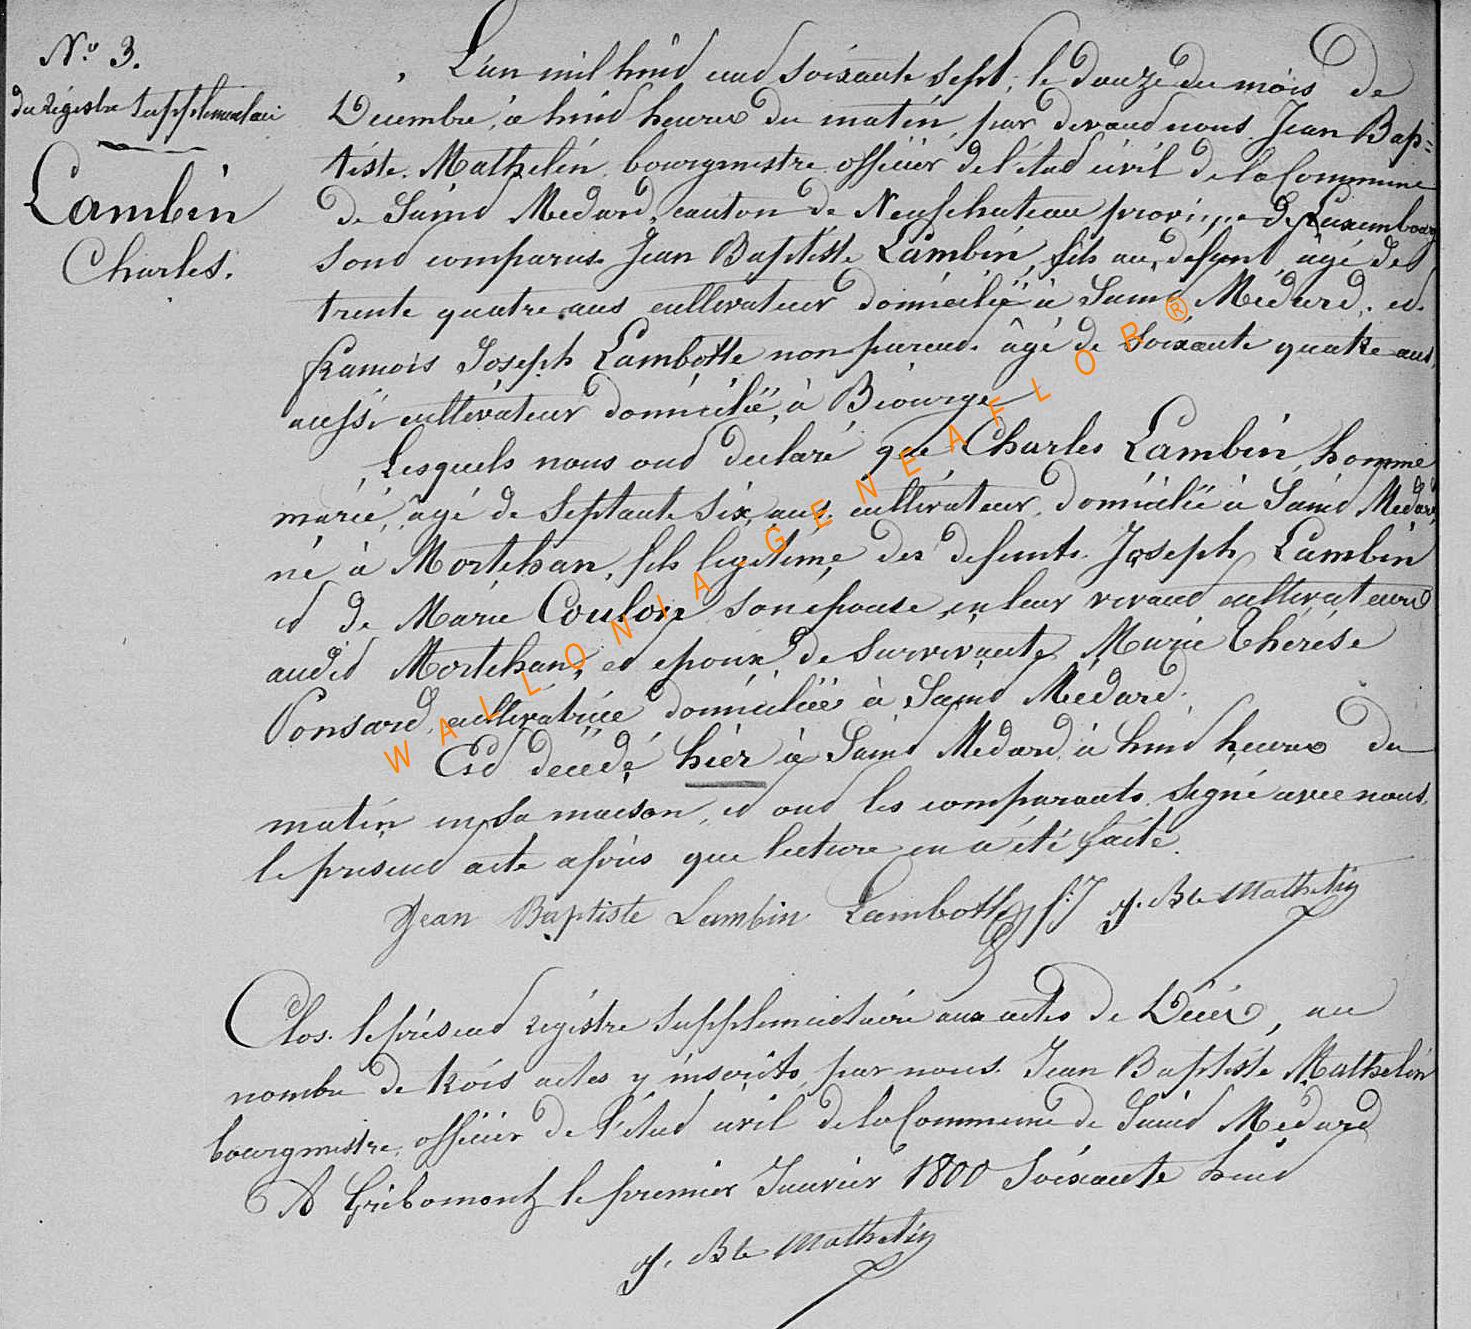 N.° 3.
du régistre supplementaire
Lambin
Charles.
L'an mil huit cent soixante sept, le douze du mois de
Decembre, à huit heures du matin, par devant nous Jean Bap=
tiste Mathelin, bourgmestre officier de l'état civil de la Commune
de Saint Medard, canton de Neufchateau province de Luxembourg
sont comparus Jean Baptiste Lambin, fils au défunt, âgé de
trente quatre ans cultivateur domicilié à Saint Medard, et
françois Joseph Lambotte non parent, âgé de soixante quatre ans,
aussi cultivateur domicilié, à Biourge
Lesquels nous ont declaré que Charles Lambin, homme
marié, âgé de septante six ans cultivateur, domicilié à Saint Médard,
né à Mortehan, fils legitime des defunts Joseph Lambin
et de Marie Coulon son epouse, en leur vivant cultivateurs
audit Mortehan, et epoux de survivante Marie Thérése
Ponsard, cultivatrice domiciliée à Saint Médard.
Est decedé hier à Saint Medard, à huit heures du
matin en sa maison, et ont les comparants signé avec nous
le present acte après que lecture en a été faite.
Jean Baptiste Lambin Lambotte f: J J. Bte Mathelin
Clos le présent régistre supplementaire aux actes de Décès, au
nombre de trois actes y inscrits, par nous Jean Baptiste Mathelin
bourgmestre, officier de l'état civil de la Commune de Saint Medard
A Gribomont le premier Janvier 1800 soixante huit
J. Bte Mathelin
WALLONIA-GENEAFLOR®